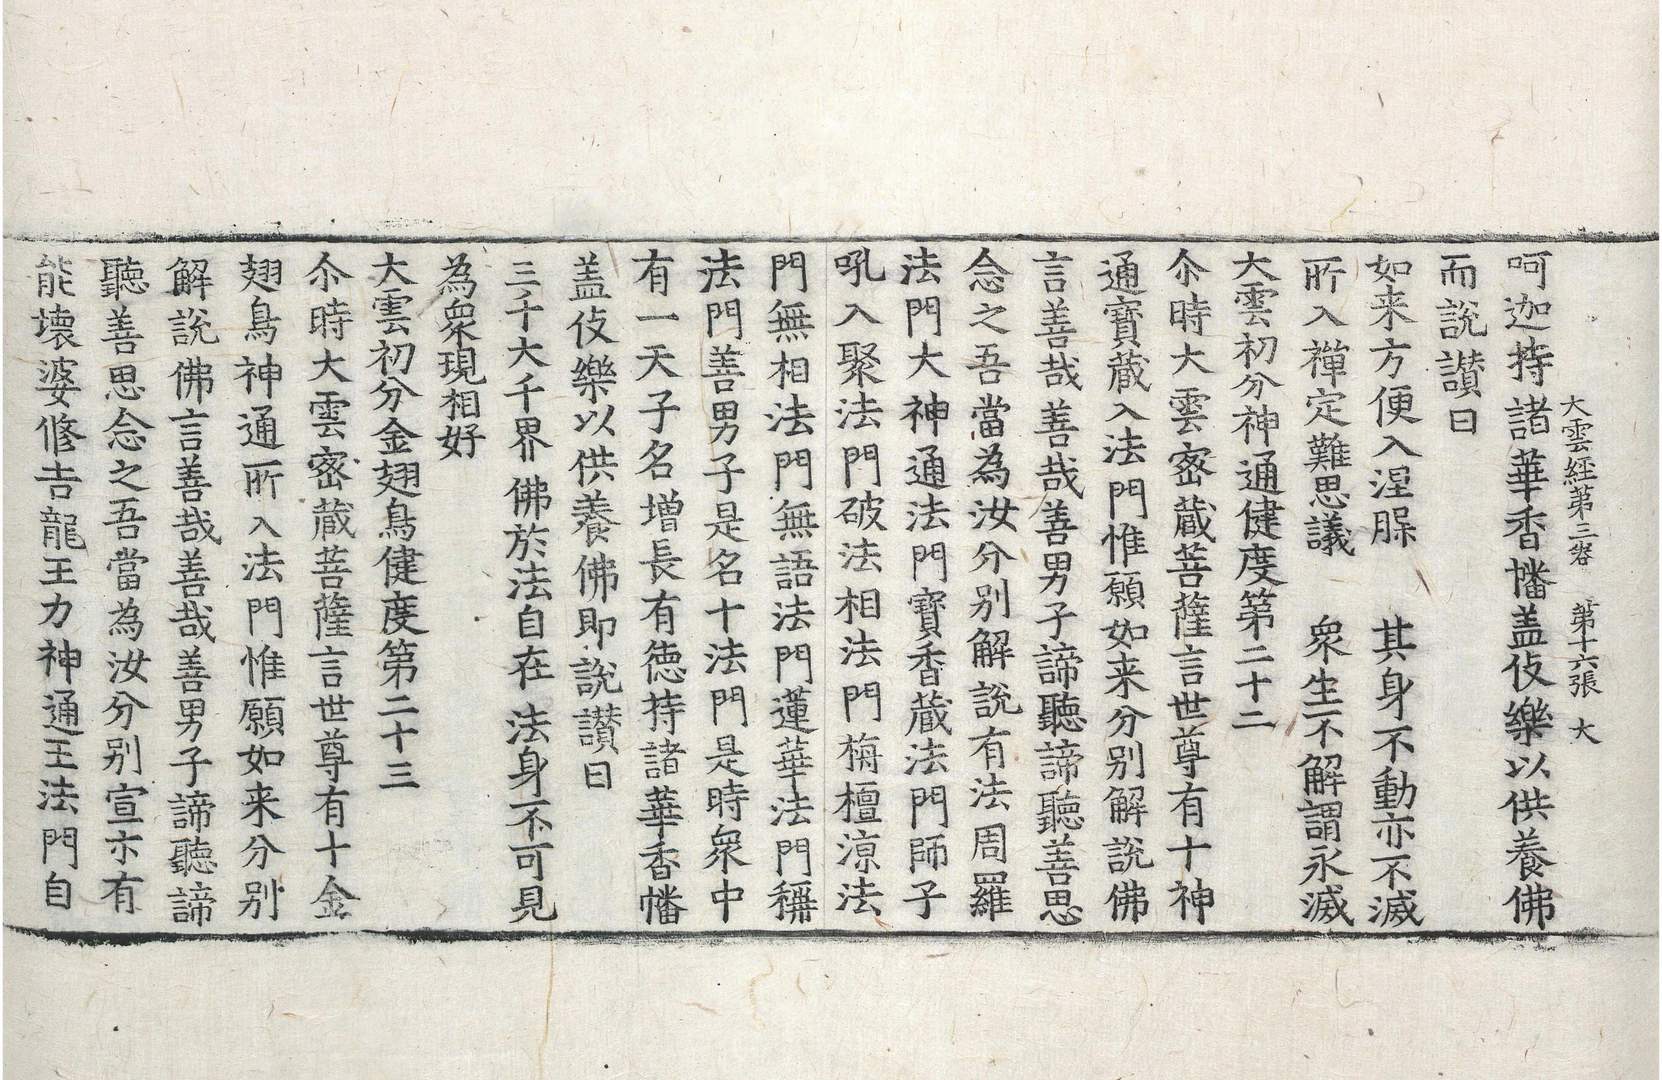 大雲經第三卷 第十六張 大
呵迦持諸華香幡盖伎樂以供養佛
而說讃曰
如来方便入涅𦙾 其身不動亦不滅
所入禪定難思議 衆生不解謂永滅
大雲初分神通健度第二十二
尒時大雲密蔵菩薩言世尊有十神
通寶蔵入法門惟願如来分别解說佛
言善哉善哉善男子諦聽諦聽善思
念之吾當為汝分别解說有法周羅
法門大神通法門寶香蔵法門師子
吼入聚法門破法相法門栴檀涼法
門無相法門無語法門蓮華法門稱
法門善男子是名十法門是時衆中
有一天子名增長有徳持諸華香幡
盖伎樂以供養佛即說讃曰
三千大千界佛於法自在 法身不可見
為衆現相好
大雲初分金翅鳥健度第二十三
尒時大雲密蔵菩薩言世尊有十金
翅鳥神通所入法門惟願如来分别
解說佛言善哉善哉善男子諦聽諦
聽善思念之吾當為汝分别宣亦有
能壞婆修吉龍王力神通王法門自